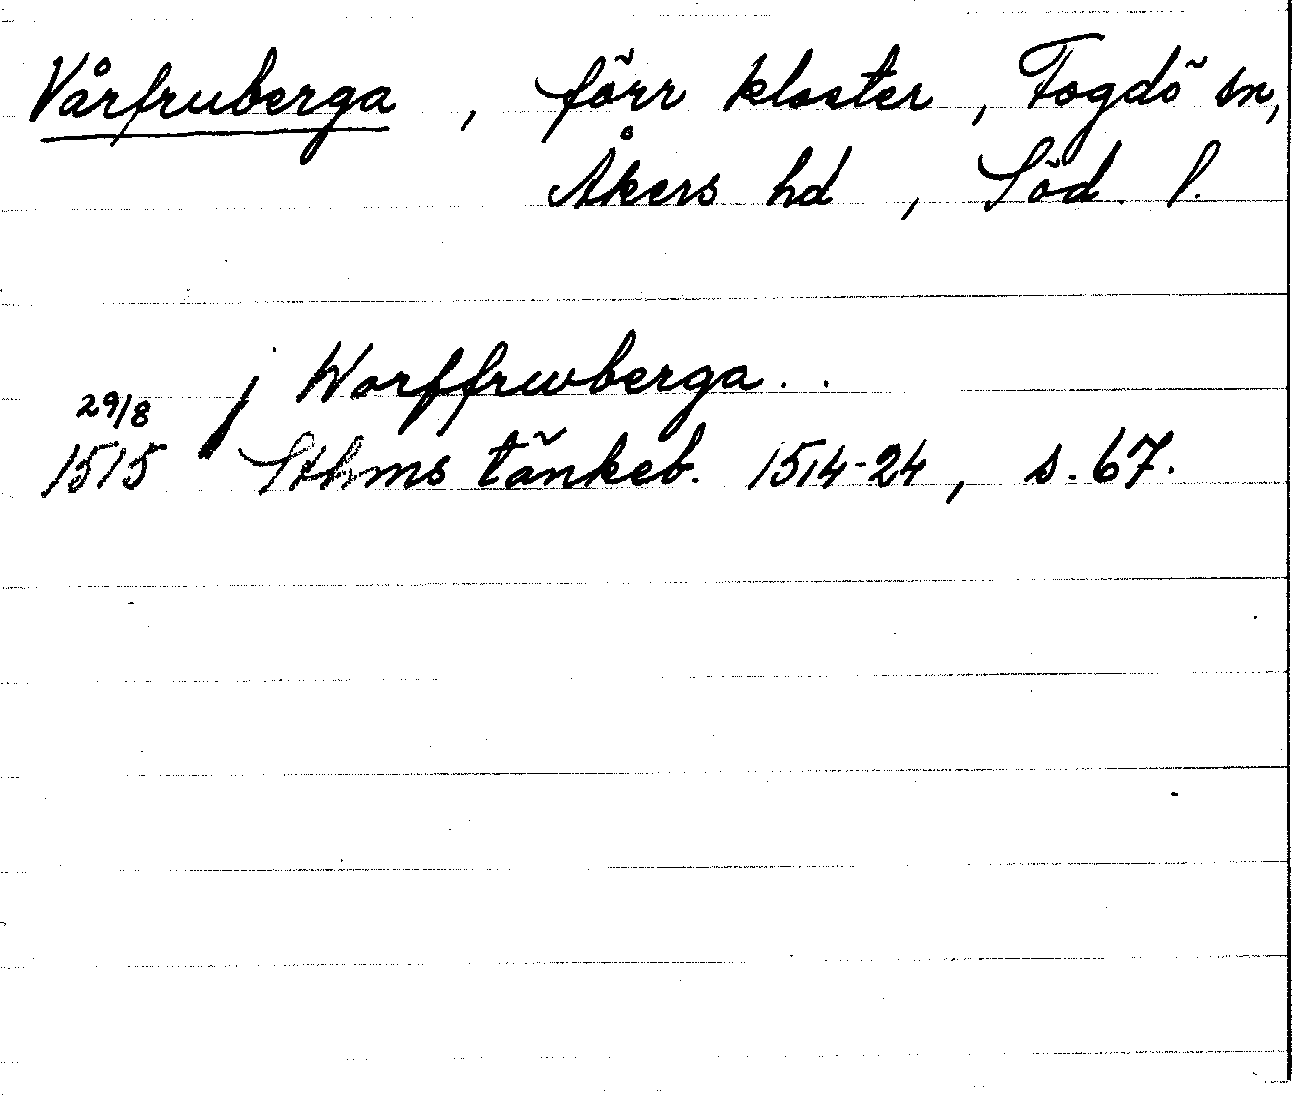 Vårfruberga, förr kloster, Fogdö sn,
Åkers hd, Söd. l.
j Worffrwberga..
29/8
1515 Sthms tänkeb. 1514-24, s. 67.